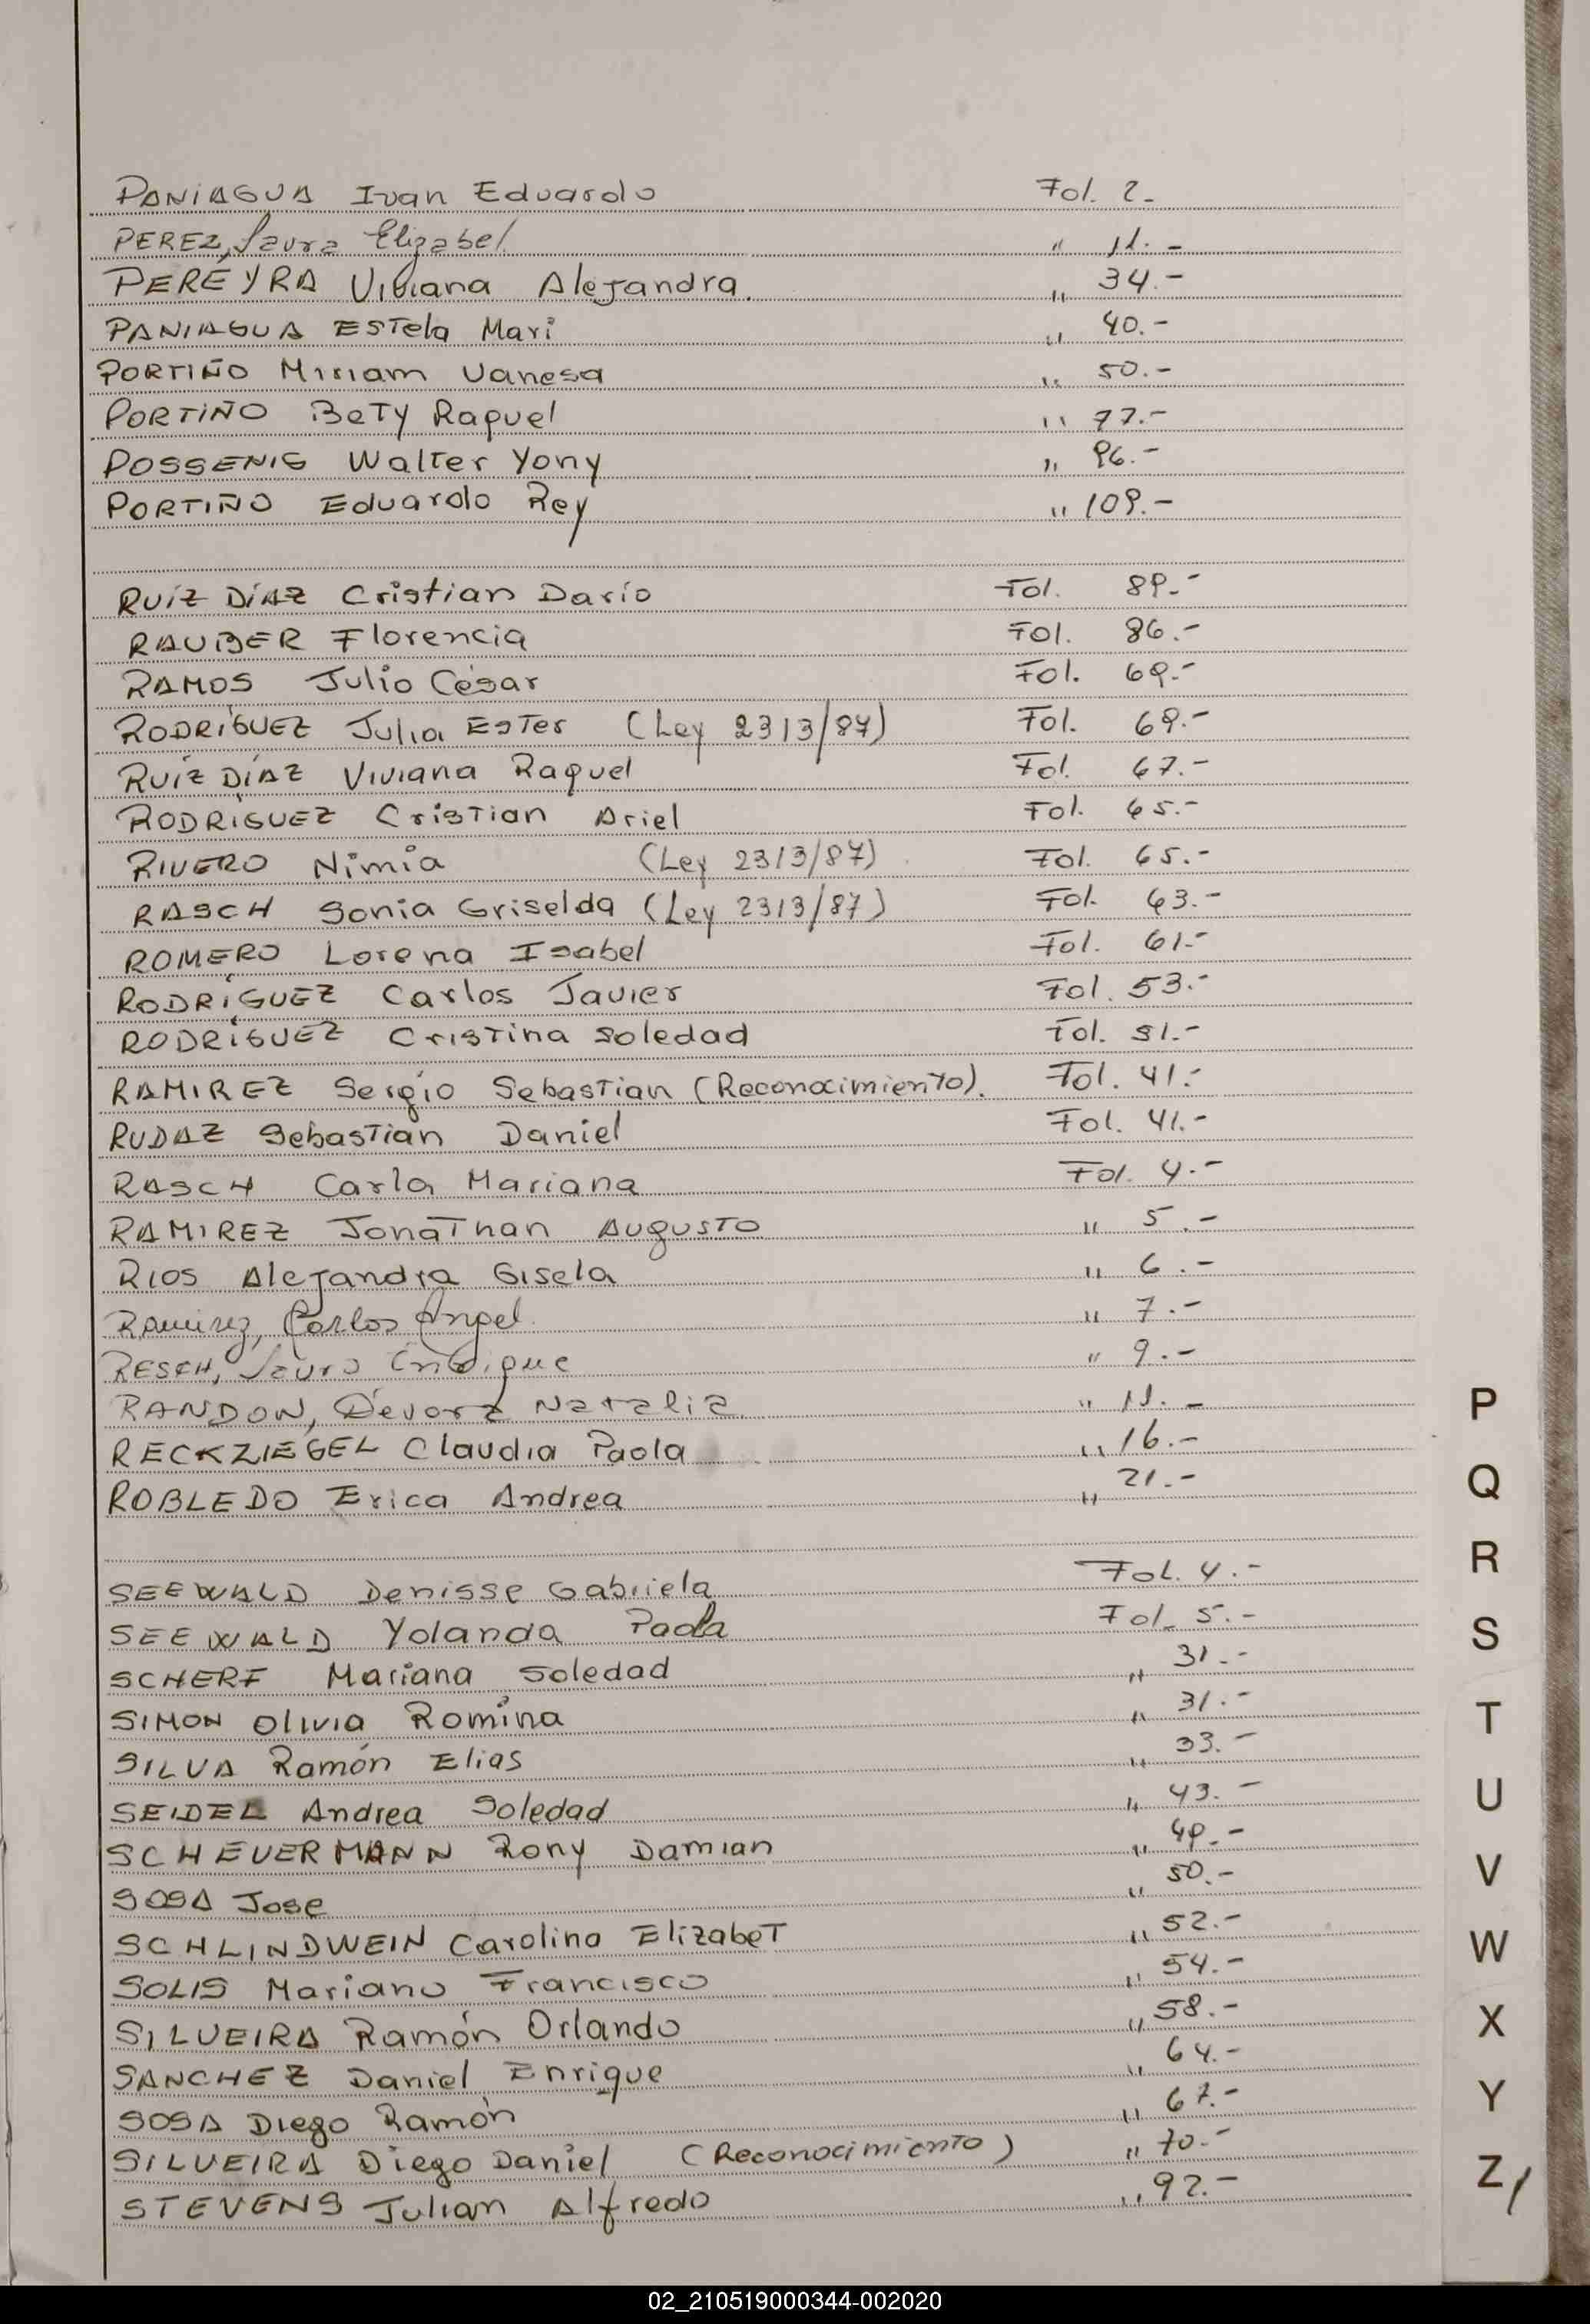 PANIAGUA Ivan Eduardo Fol. 2.-
PEREZ, Laura Elizabel " 11.-
PEREYRA Viviana Alejandra. " 34.-
PANIAGUA Estela Mari " 40.-
PORTIÑO Miriam Vanesa " 50.-
PORTIÑO Bety Raquel " 77.-
POSSENIG Walter Yony " 96.-
PORTIÑO Eduardo Rey " 109.-
RUÍZ DÍAZ Cristian Darío Fol. 89.-
RAUBER Florencia Fol. 86.-
RAMOS Julio César Fol. 69.-
RODRÍGUEZ Julia Ester (Ley 2313/87) Fol. 69.-
RUÍZ DÍAZ Viviana Raquel Fol. 67.-
RODRÍGUEZ Cristian Ariel Fol. 65.-
RIVERO Nimia (Ley 2313/87) Fol. 65.-
RASCH Sonia Griselda (Ley 2313/87) Fol. 63.-
ROMERO Lorena Isabel Fol. 61.-
RODRÍGUEZ Carlos Javier Fol. 53.-
RODRÍGUEZ Cristina Soledad Fol. 51.-
RAMIREZ Sergio Sebastian (Reconocimiento). Fol. 41.-
RUDAZ Sebastian Daniel Fol. 41.-
RASCH Carla Mariana Fol. 4.-
RAMIREZ Jonathan Augusto " 5.-
RIOS Alejandra Gisela " 6.-
Ramirez, Carlos Ángel. " 7.-
RESCH, Lauro Enrique " 9.-
RANDON, Dévora Natalia " 11.-
RECKZIEGEL Claudia Paola " 16.-
ROBLEDO Erica Andrea " 21.-
SEEWALD Denisse Gabriela Fol. 4.-
SEEWALD Yolanda Paola Fol. 5.-
SCHERF Mariana Soledad " 31.-
SIMON Olivia Romina " 31.-
SILVA Ramón Elias " 33.-
SEIDEL Andrea Soledad " 43.-
SCHEUERMANN Rony Damian " 49.-
SOSA Jose " 50.-
SCHLINDWEIN Carolina Elizabet " 52.-
SOLIS Mariano Francisco " 54.-
SILVEIRA Ramón Orlando " 58.-
SANCHEZ Daniel Enrique " 64.-
SOSA Diego Ramón " 67.-
SILVEIRA Diego Daniel (Reconocimiento) " 70.-
STEVENS Julian Alfredo " 92.-
P
Q
R
S
T
U
V
W
X
Y
Z
02_210519000344-002020